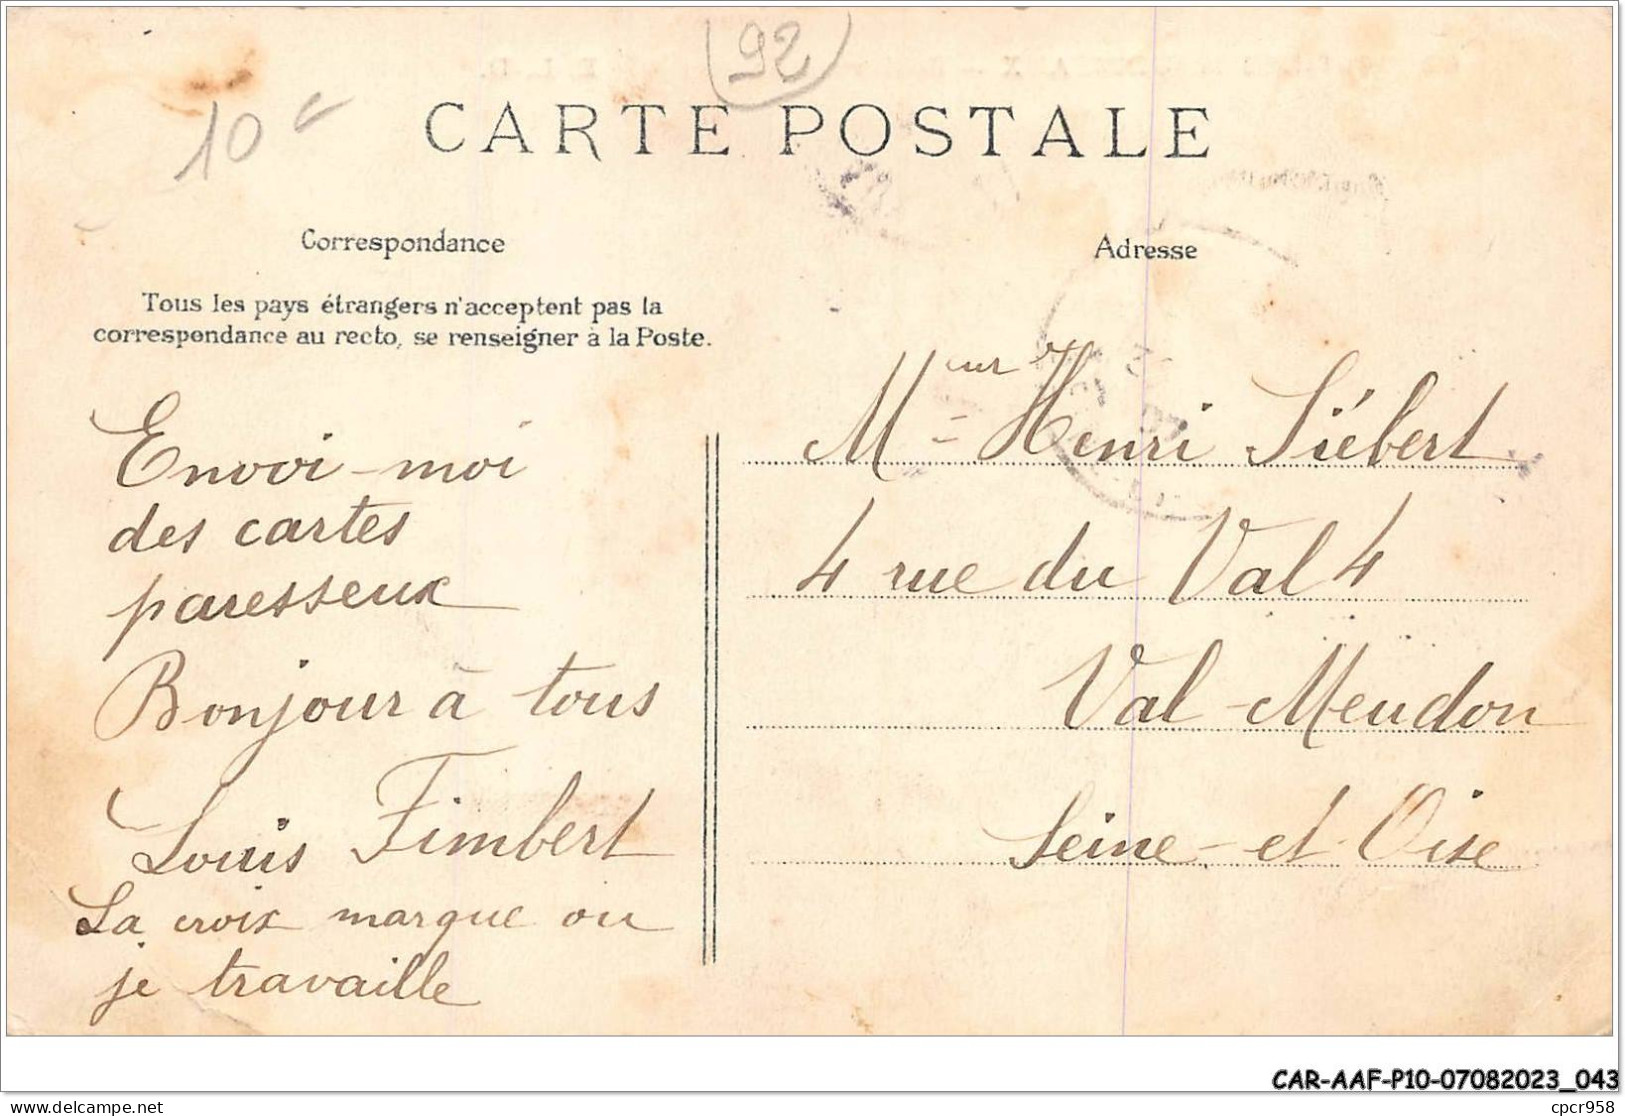 92
10 c
CARTE POSTALE
Correspondance
Tous les pays étrangers n'acceptent pas la
correspondance au recto, se renseigner à la Poste.
Envoi-moi
des cartes
paresseux
Bonjour à tous
Louis Fimbert
La croix marque ou
je travaille
Adresse
Meur Henri Siébert
4 rue du Val 4
Val-Meudon
Seine-et-Oise
CAR-AAF-P10-07082023_043
cpcr958